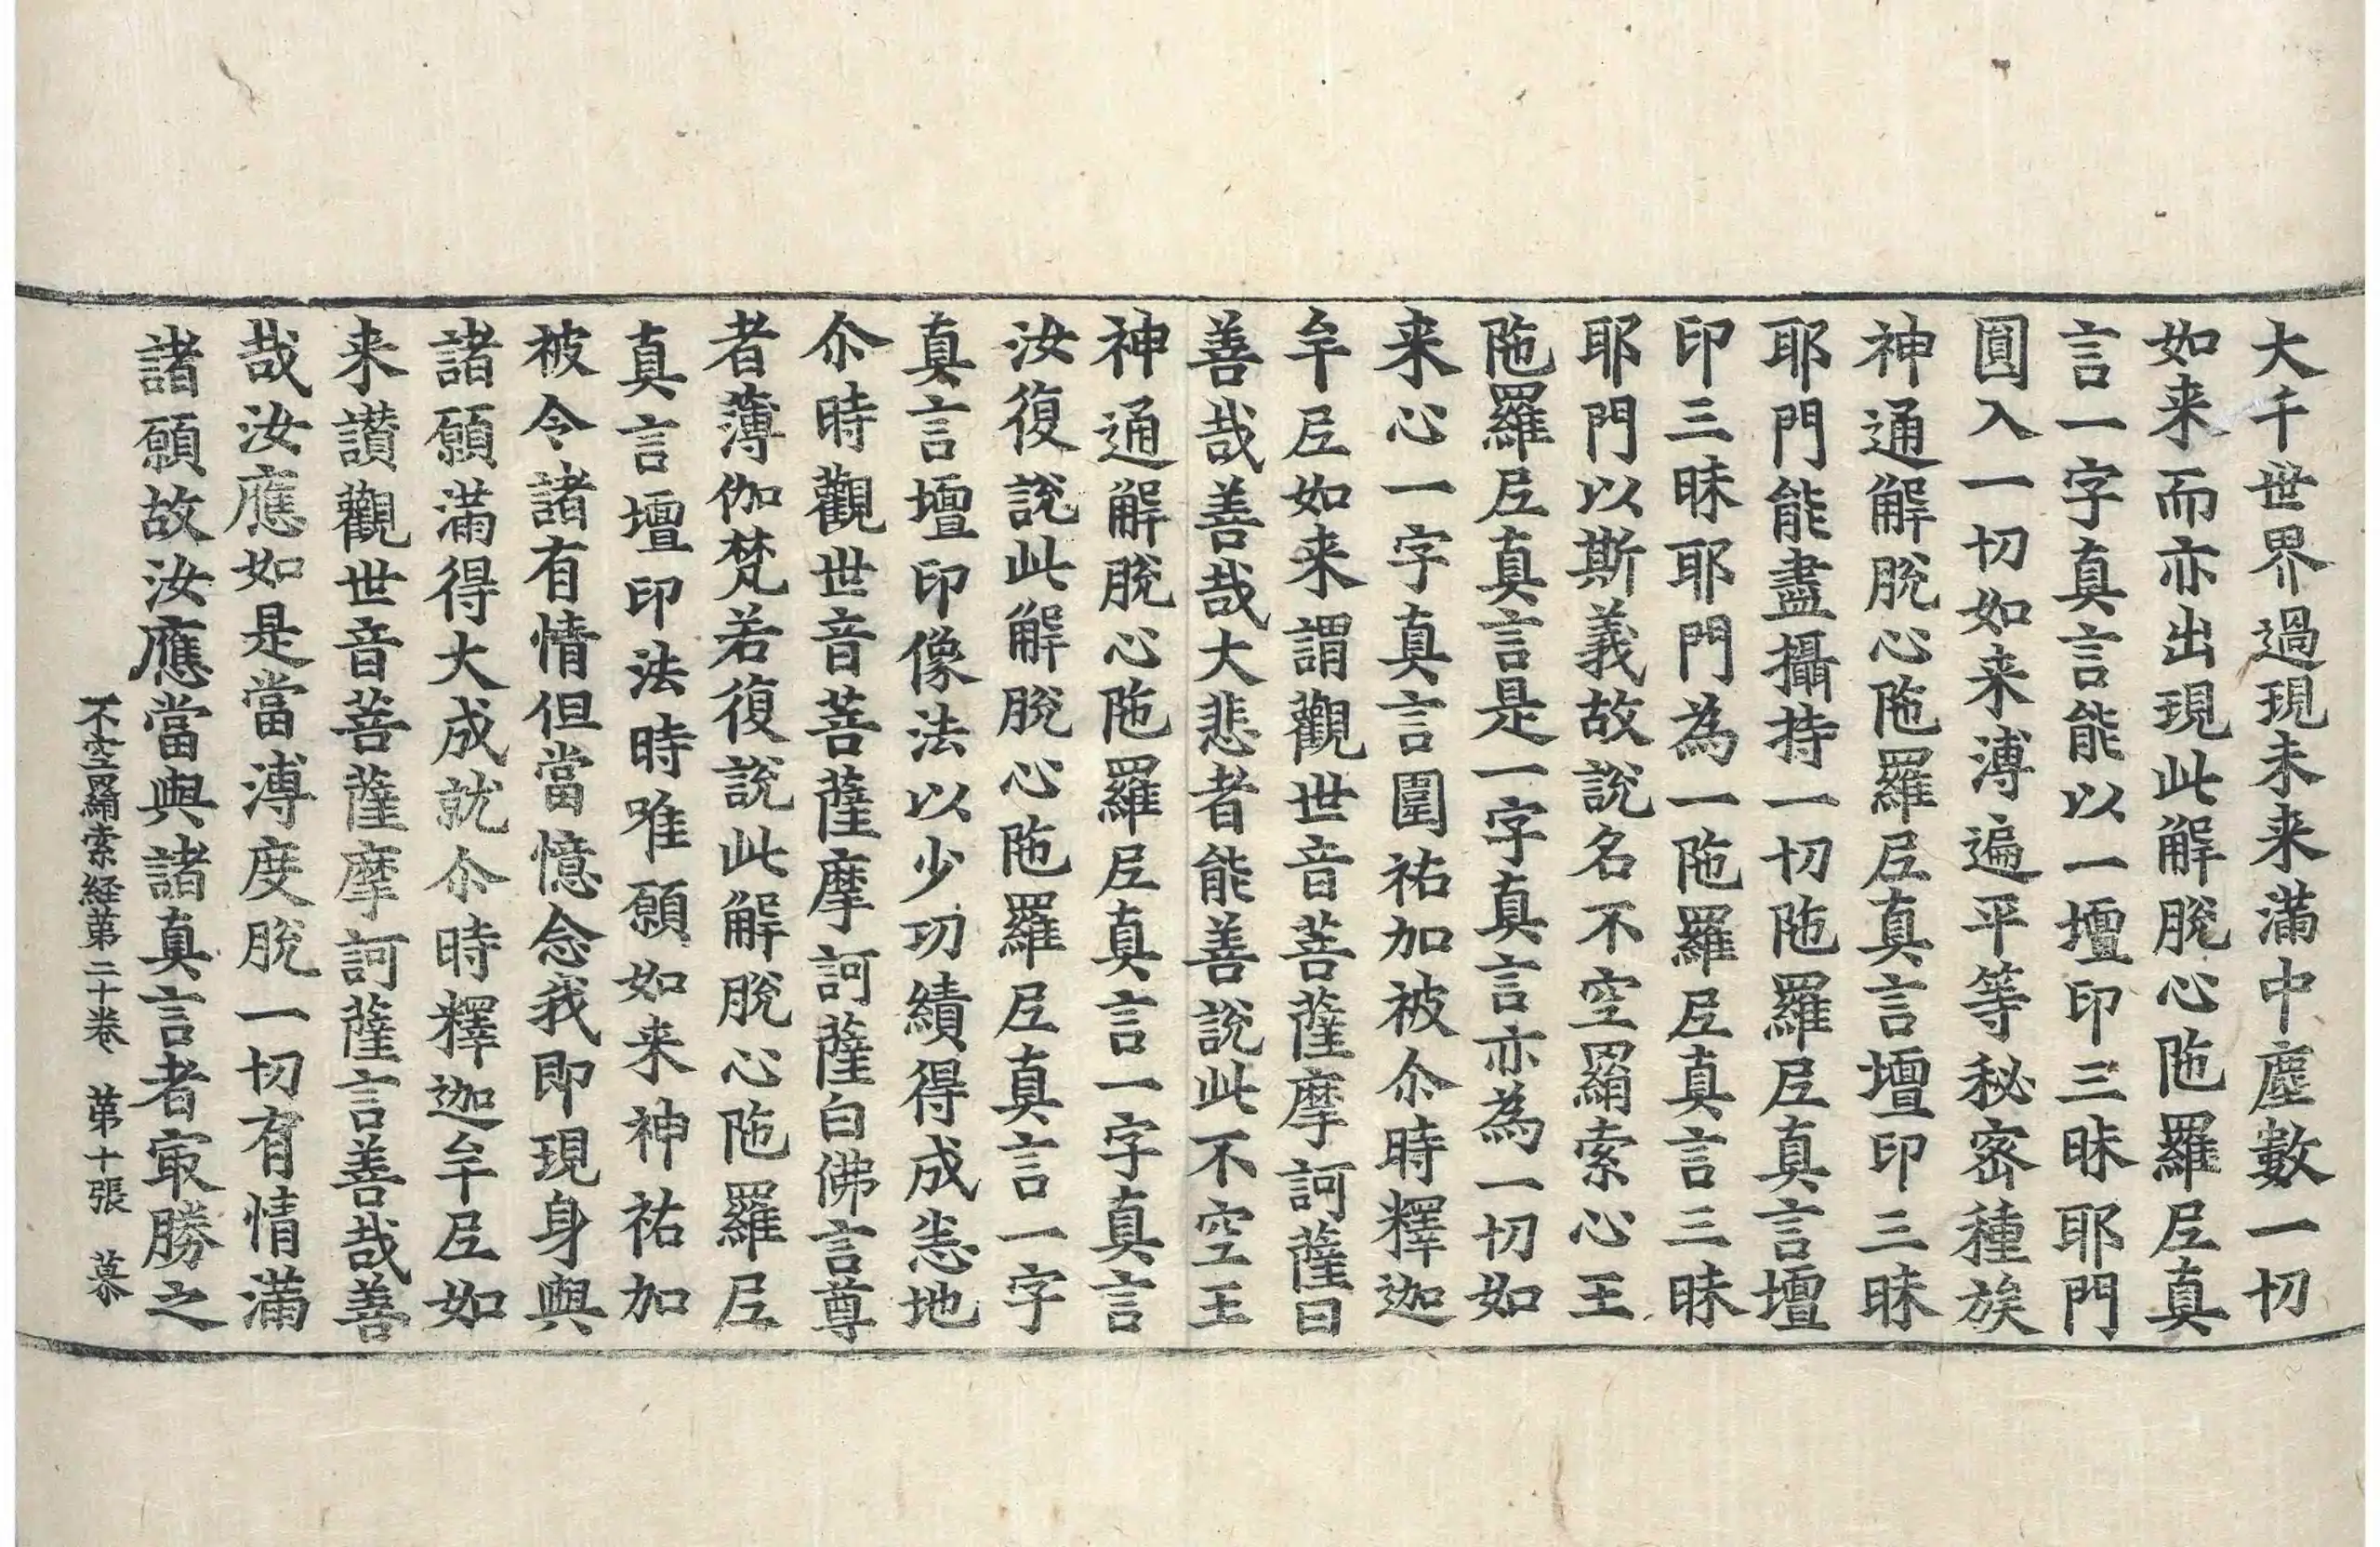 大千世界過現未来滿中塵數一切
如来而亦出現此解脫心陁羅𡰱真
言一字真言能以一壇印三昧耶門
圓入一切如来溥遍平等秘密種族
神通解脫心陁羅𡰱真言壇印三昧
耶門能盡攝持一切陁羅𡰱真言壇
印三昧耶門為一陁羅𡰱真言三昧
耶門以斯義故說名不空羂索心王
陁羅𡰱真言是一字真言亦為一切如
来心一字真言圍祐加被尒時釋迦
牟𡰱如来謂觀世音菩薩摩訶薩曰
善哉善哉大悲者能善說此不空王
神通解脫心陁羅𡰱真言一字真言
汝復說此解脫心陁羅𡰱真言一字
真言壇印像法以少功績得成恙地
尒時觀世音菩薩摩訶薩白佛言尊
者薄伽梵若復說此解脫心陁羅𡰱
真言壇印法時唯願如来神祐加
被令諸有情但當憶念我即現身與
諸願滿得大成就尒時釋迦牟𡰱如
来讚觀世音菩薩摩訶薩言善哉善
哉汝應如是當溥度脫一切有情滿
諸願故汝應當與諸真言者㝡勝之
不空羂索経苐二十卷 苐十張 慕